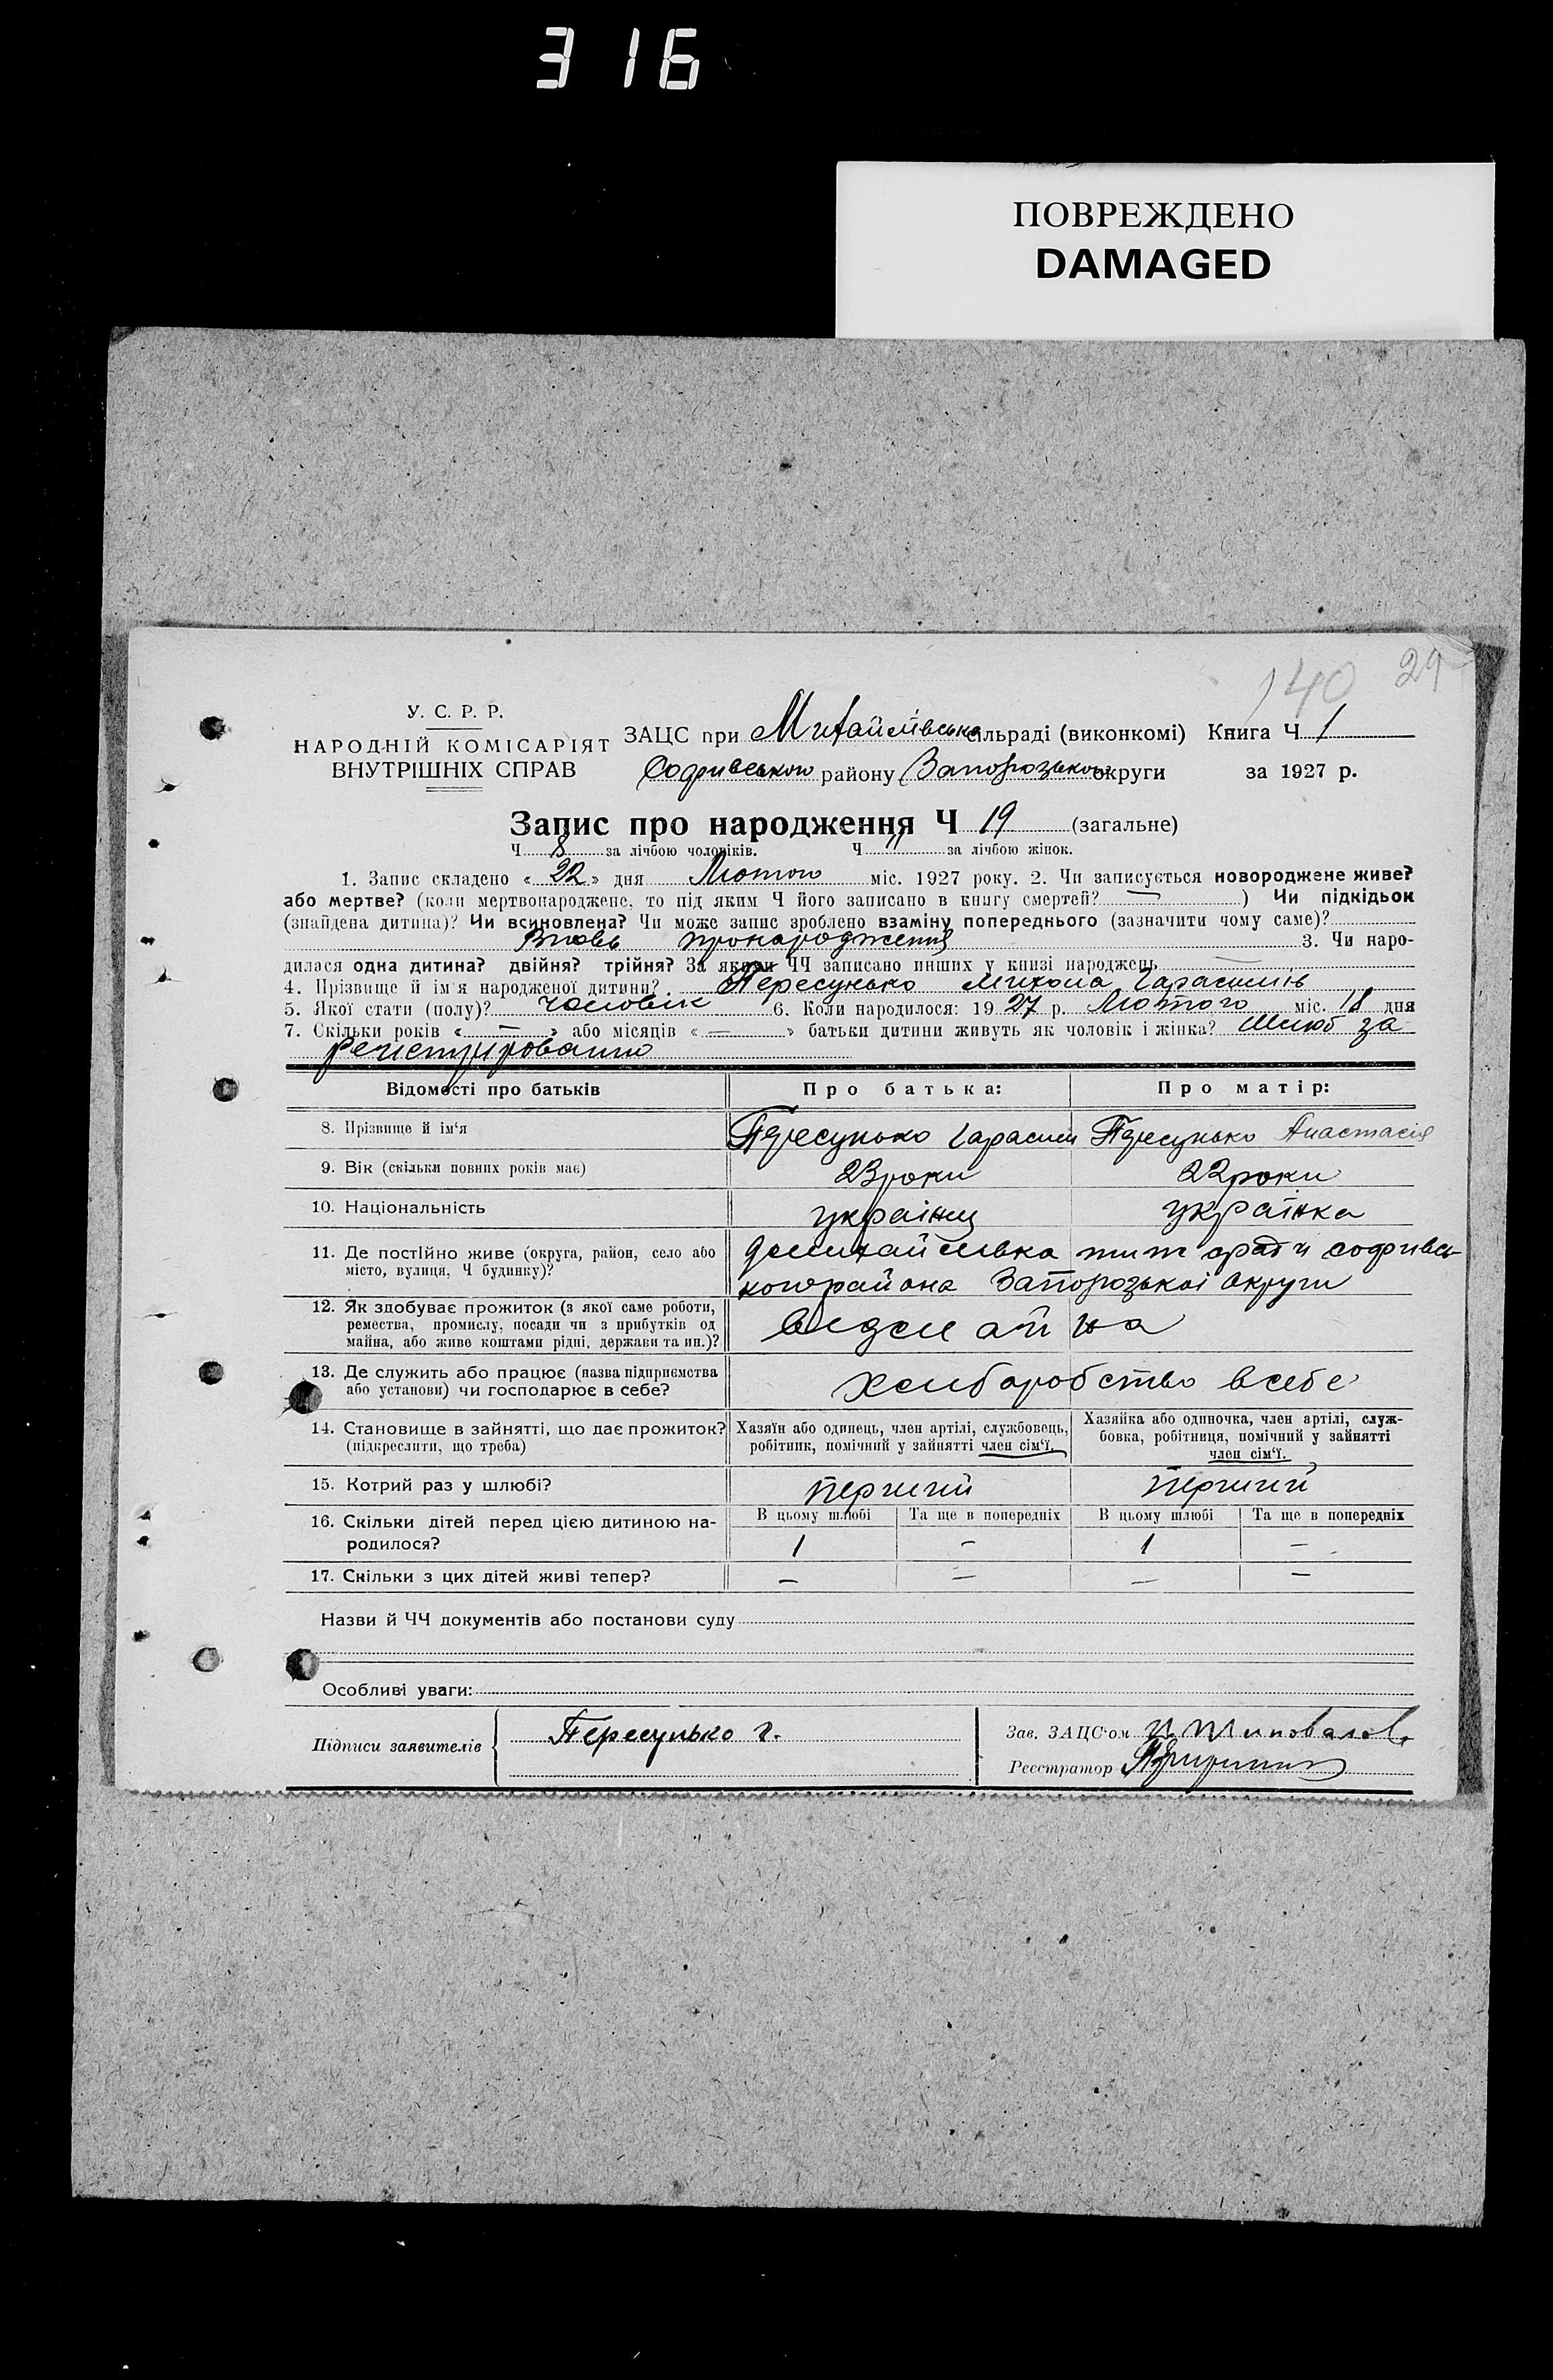 316
ПОВРЕЖДЕНО
DAMAGED
140 29
У. С. Р. Р.
НАРОДНІЙ КОМІСАРІЯТ
ВНУТРІШНІХ СПРАВ
ЗАЦС при Михайлівська сільраді (виконкомі) Книга Ч 1
Софиевського району Запорозькои округи за 1927 р.
Запис про народження Ч 19 (загальне)
Ч 8 за лічбою чоловіків. Ч " за лічбою жінок.
1. Запис складено « 22 » дня Лютого міс. 1927 року. 2. Чи записується новороджене живе?
або мертве? (коли мертвонароджене, то під яким Ч його записано в книгу смертей? — ) Чи підкідьок
(знайдена дитина)? Чи всиновлена? Чи може запис зроблено взаміну попереднього (зазначити чому саме)?
Вновь пронародження 3. Чи наро-
дилася одна дитина? двійня? трійня? За якими ЧЧ записано инших у книзі народжень —
4. Прізвище й ім'я народженої дитини? Пересунько Микола Гарасимів
5. Якої стати (полу)? чоловік 6. Коли народилося: 19 27 р. Лютого міс. 18 дня
7. Скільки років « — » або місяців « — » батьки дитини живуть як чоловік і жінка? Шлюб за
регистрировано
Відомості про батьків Про батька: Про матір:
8. Прізвище й ім'я Пересунько Гарасим Пересунько Анастасія
9. Вік (скільки повних років має) 23 роки 22 роки
10. Національність українц українка
11. Де постійно живе (округа, район, село або місто, вулиця, Ч будинку)? Михайлівка софиевсь-
кого района Запорозькоі округи
12. Як здобуває прожиток (з якої саме роботи,
ремества, промислу, посади чи з прибутків од
майна, або живе коштами рідні, держави та ин.)?
13. Де служить або працює (назва підприємства
або установи) чи господарює в себе? хлиборобство всебе
14. Становище в зайнятті, що дає прожиток?
(підкреслити, що треба)
Хазяїн або одинець, член артілі, службовець,
робітник, помічний у зайнятті член сім'ї.
Хазяйка або одиночка, член артілі, служ-
бовка, робітниця, помічний у зайнятті
член сім'ї.
15. Котрий раз у шлюбі? перший перший
16. Скільки дітей перед цією дитиною на-
родилося?
В цьому шлюбі Та ще в попередніх В цьому шлюбі Та ще в попередніх
1 — 1 —
17. Скільки з цих дітей живі тепер? — — — —
Назви й ЧЧ документів або постанови суду
Особливі уваги:
Підписи заявителів Пересунько г.
Зав. ЗАЦС'ом Шаповалов
Реєстратор